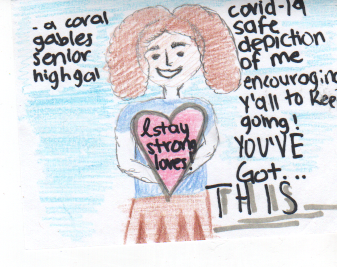 - a coral
gables
senior
high gal
covid-19
safe
depiction
of me
encouraging
y'all to keep
going!
YOU'VE
Got...
THIS
stay
strong
loves!